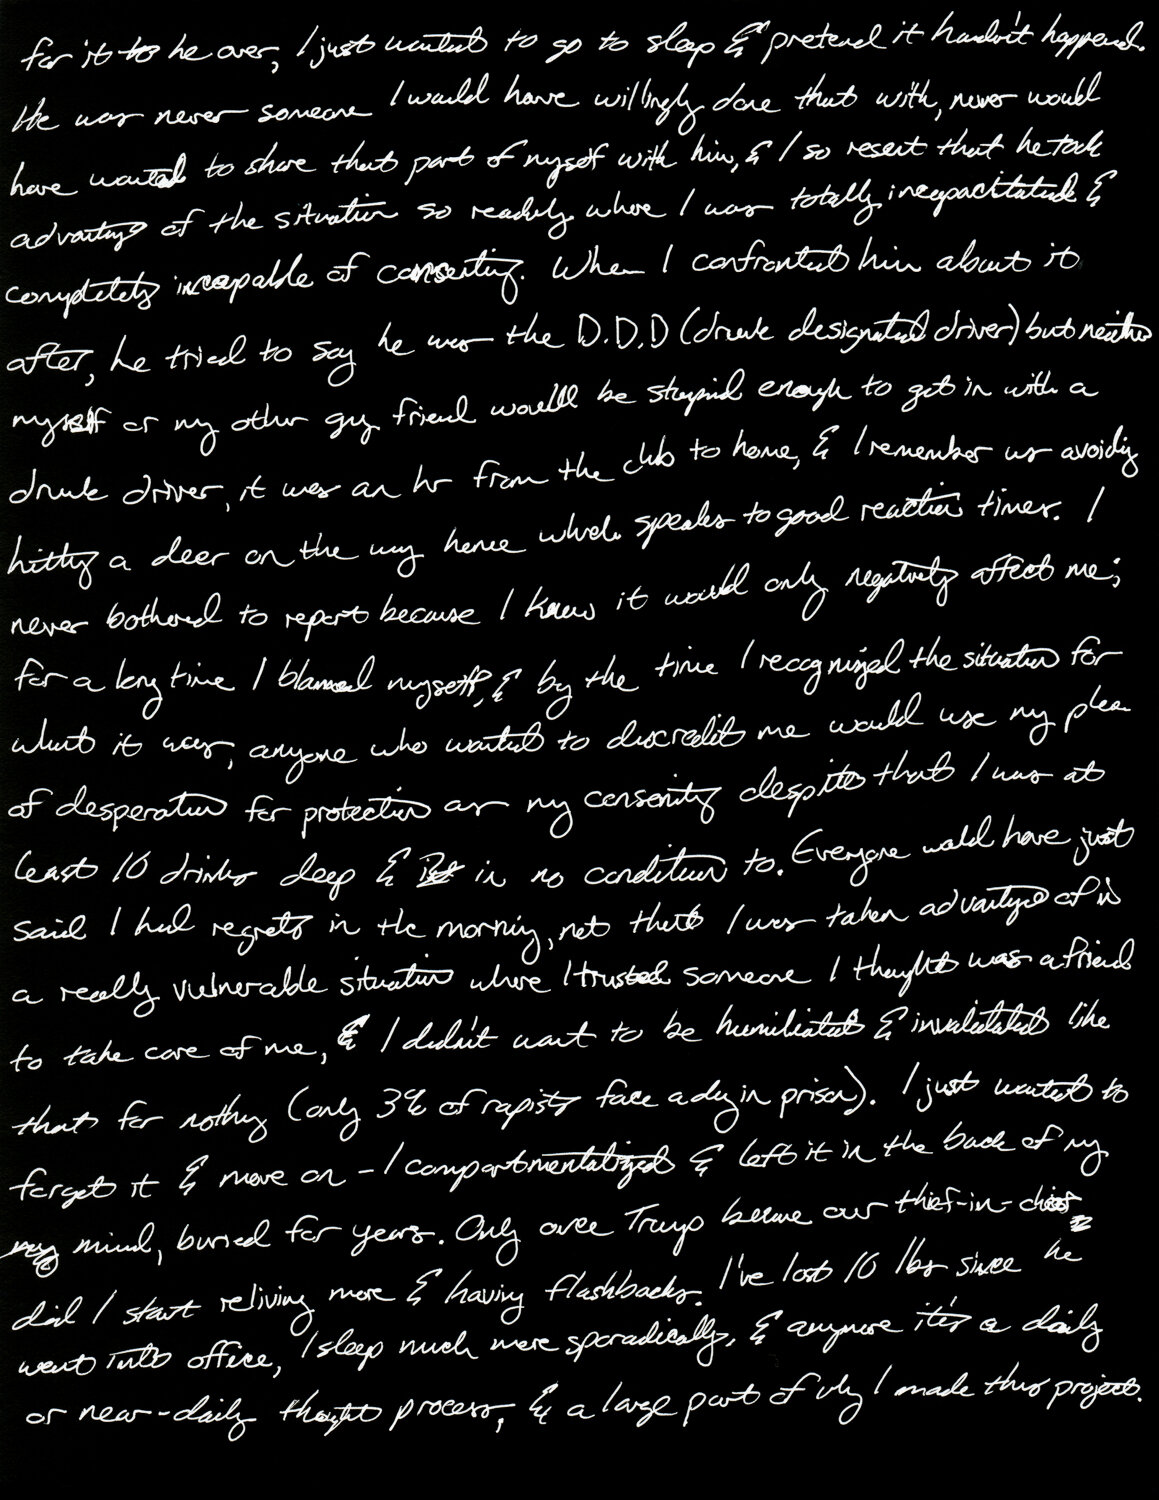 for it to be over, I just wanted to go to sleep & pretend it hadn't happened.
He was never someone I would have willingly done that with, never would
have wanted to share that part of myself with him, & I so resent that he took
advantage of the situation so readily where I was totally incapacitated &
completely incapable of consenting. When I confronted him about it
after, he tried to say he was the D.D.D (drunk designated driver) but neither
myself or my other guy friend would be stupid enough to get in with a
drunk driver, it was an hr from the club to home, & I remember us avoiding
hitting a deer on the way home which speaks to good reaction times. I
never bothered to report because I knew it would only negatively affect me;
for a long time I blamed myself, & by the time I recognized the situation for
what it was, anyone who wanted to discredit me would use my plea
of desperation for protection as my consenting despite that I was at
least 10 drinks deep & in no condition to. Everyone would have just
said I had regrets in the morning, not that I was taken advantage of in
a really vulnerable situation where I trusted someone I thought was a friend
to take care of me, & I didn't want to be humiliated & invalidated like
that for nothing (only 3% of rapists face a day in prison). I just wanted to
forget it & move on - I compartmentalized & left it in the back of my
mind, buried for years. Only once Trump became our thief-in-chief
did I start reliving more & having flashbacks. I've lost 10 lbs since he
went into office, I sleep much more sporadically, & anymore it's a daily
or near-daily thought process, & a large part of why I made this project.